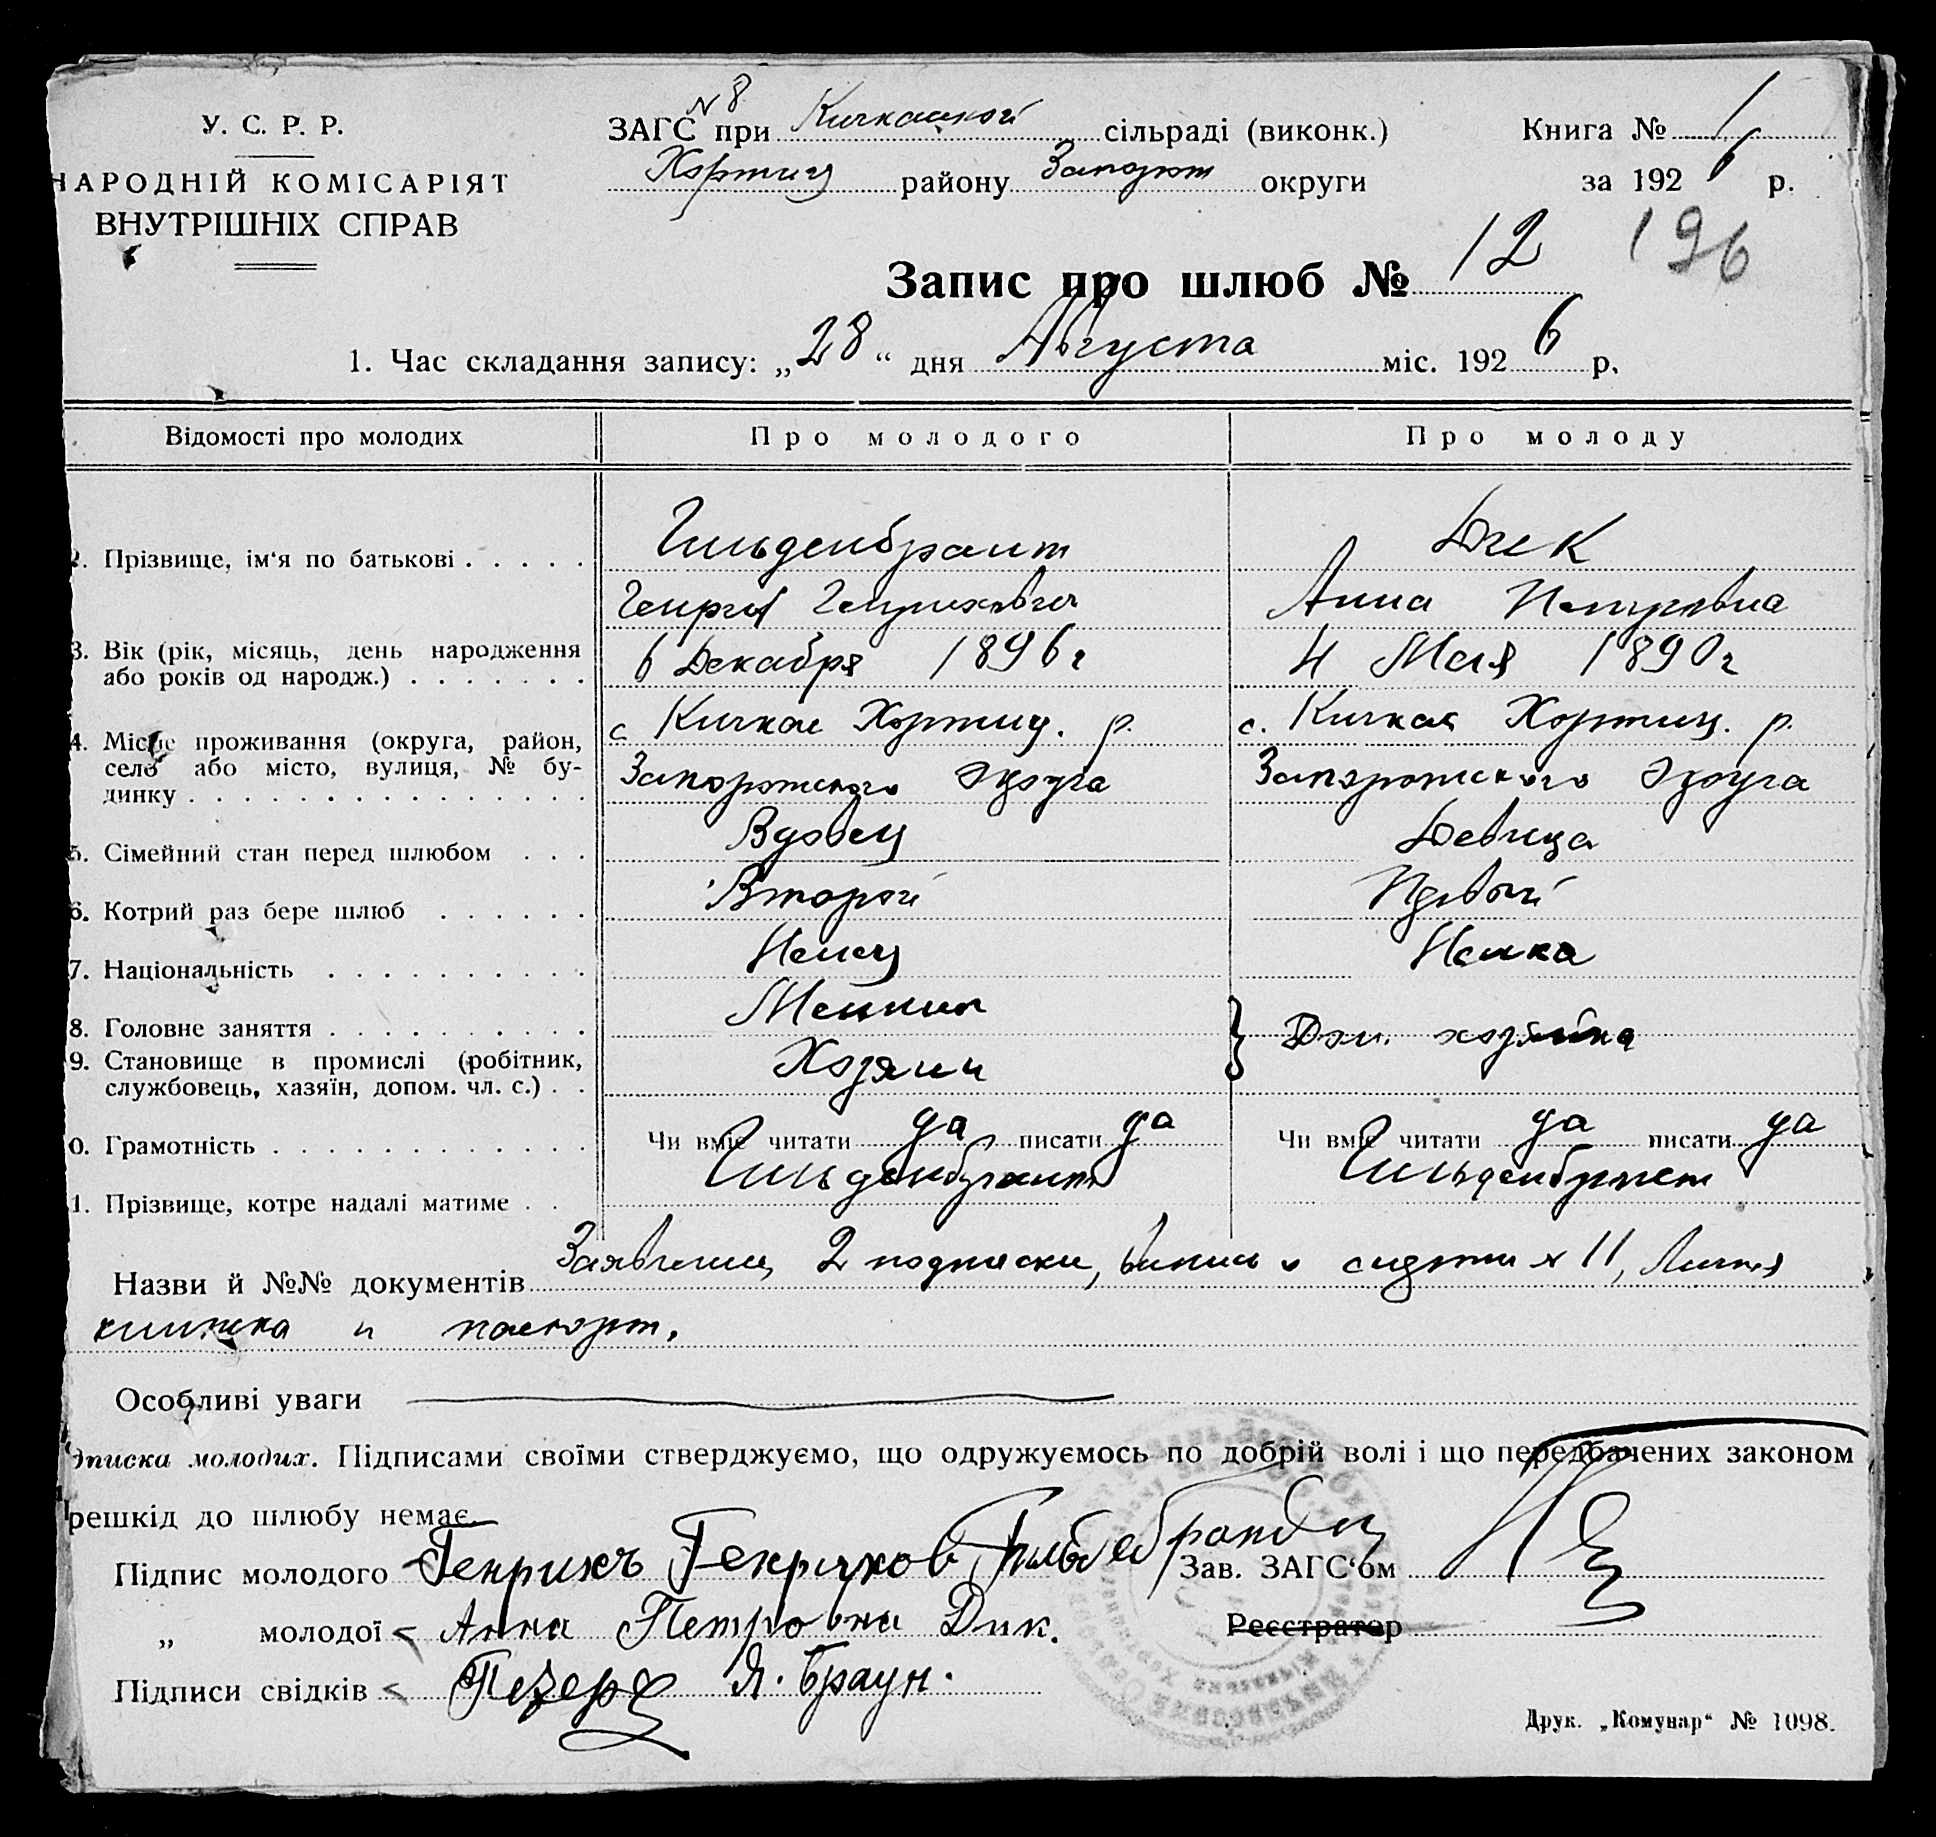 У. С. Р. Р.
НАРОДНІЙ КОМІСАРІЯТ
ВНУТРІШНІХ СПРАВ
N 8
ЗАГС при Кичкасской сільраді (виконк.)
Хортиц району Запорож округи
Книга № 1
за 192 6 р.
196
Запис про шлюб № 12
1. Час складання запису: „28“ дня Августа міс. 192 6 р.
Відомості про молодих Про молодого Про молоду
2. Прізвище, ім‘я по батькові Гильденбрант Дик
Генрих Генрихович Анна Петровна
3. Вік (рік, місяць, день народження
або років од народж.) 6 Декабря 1896 г 4 Мая 1890 г
4. Місце проживання (округа, район,
село або місто, вулиця, № бу-
динку
с Кичкас Хортиц. р. с. Кичкас Хортиц. р.
Запорожского Округа Запорожского Округа
5. Сімейний стан перед шлюбом Вдовец Девица
6. Котрий раз бере шлюб Второй Первый
7. Національність Немец Немка
8. Головне заняття
9. Становище в промислі (робітник,
службовець, хазяїн, допом. чл. с.) Хозяин
Дом. хозяйка
0. Грамотність Чи вміє читати да писати да Чи вміє читати да писати да
1. Прізвище, котре надалі матиме Гильденбрант Гильденбрант
Назви й №№ документів Заявление, 2 подписки, выпись о смерти № 11, Личная
книжка и паспорт.
Особливі уваги
дписка молодих. Підписами своїми стверджуємо, що одружуємось по добрій волі і що передбачених законом
решкід до шлюбу немає.
Підпис молодого Генрихъ Генрихов Гильдебрандт
Зав. ЗАГС‘ом
„ молодої Анна Петровна Дик.
Реєстратор
Підписи свідків Я. Браун.
Друк. „Комунар“ № 1098.